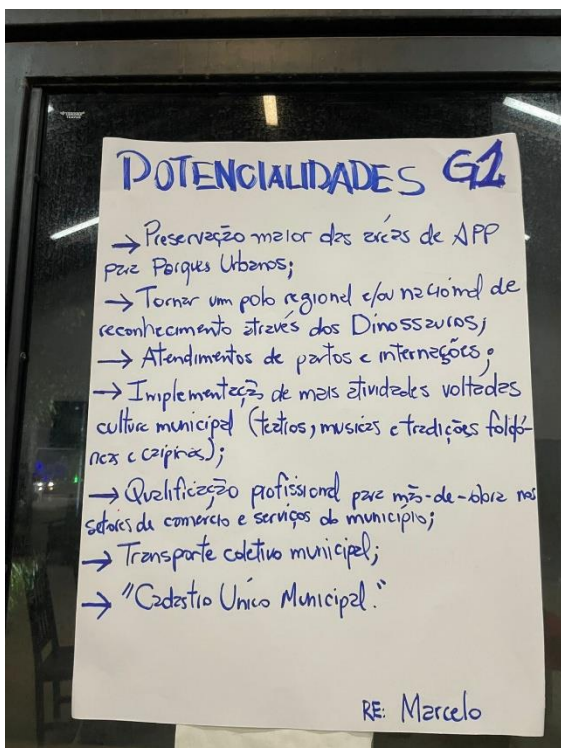 POTENCIALIDADES G1
→ Preservação maior das areas de APP
para Parques Urbanos;
→ Tornar um polo regional e/ou nacional de
reconhecimento através dos Dinossauros;
→ Atendimentos de partos e internações;
→ Implementação de mais atividades voltadas
cultura municipal (teatros, musicas e tradições folcló-
ricas e caipiras);
→ Qualificação profissional para mão-de-obra nos
setores de comercio e serviços do município;
→ Transporte coletivo municipal;
→ "Cadastro Unico Municipal."
RE: Marcelo